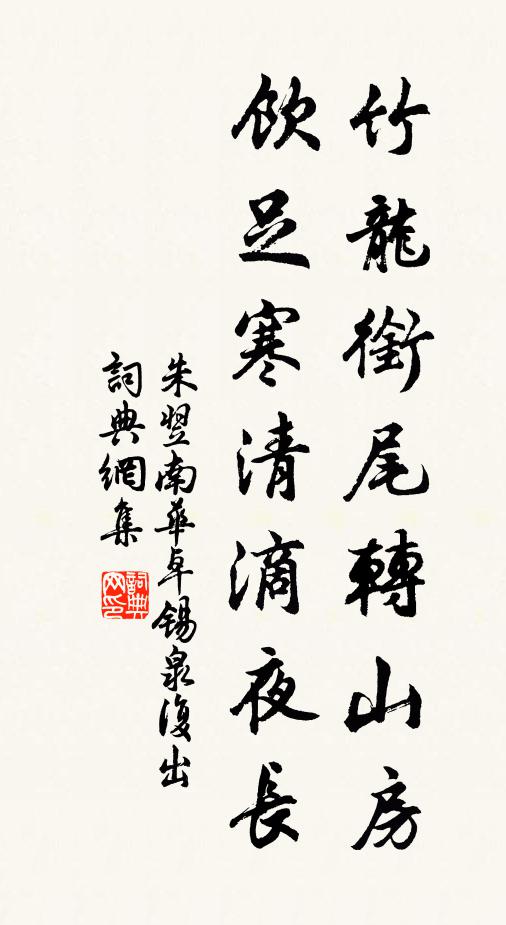 竹龍銜尾轉山房
飲足寒清滴夜長
朱翌南華卓錫泉復出
詞典網集
詞典
网印